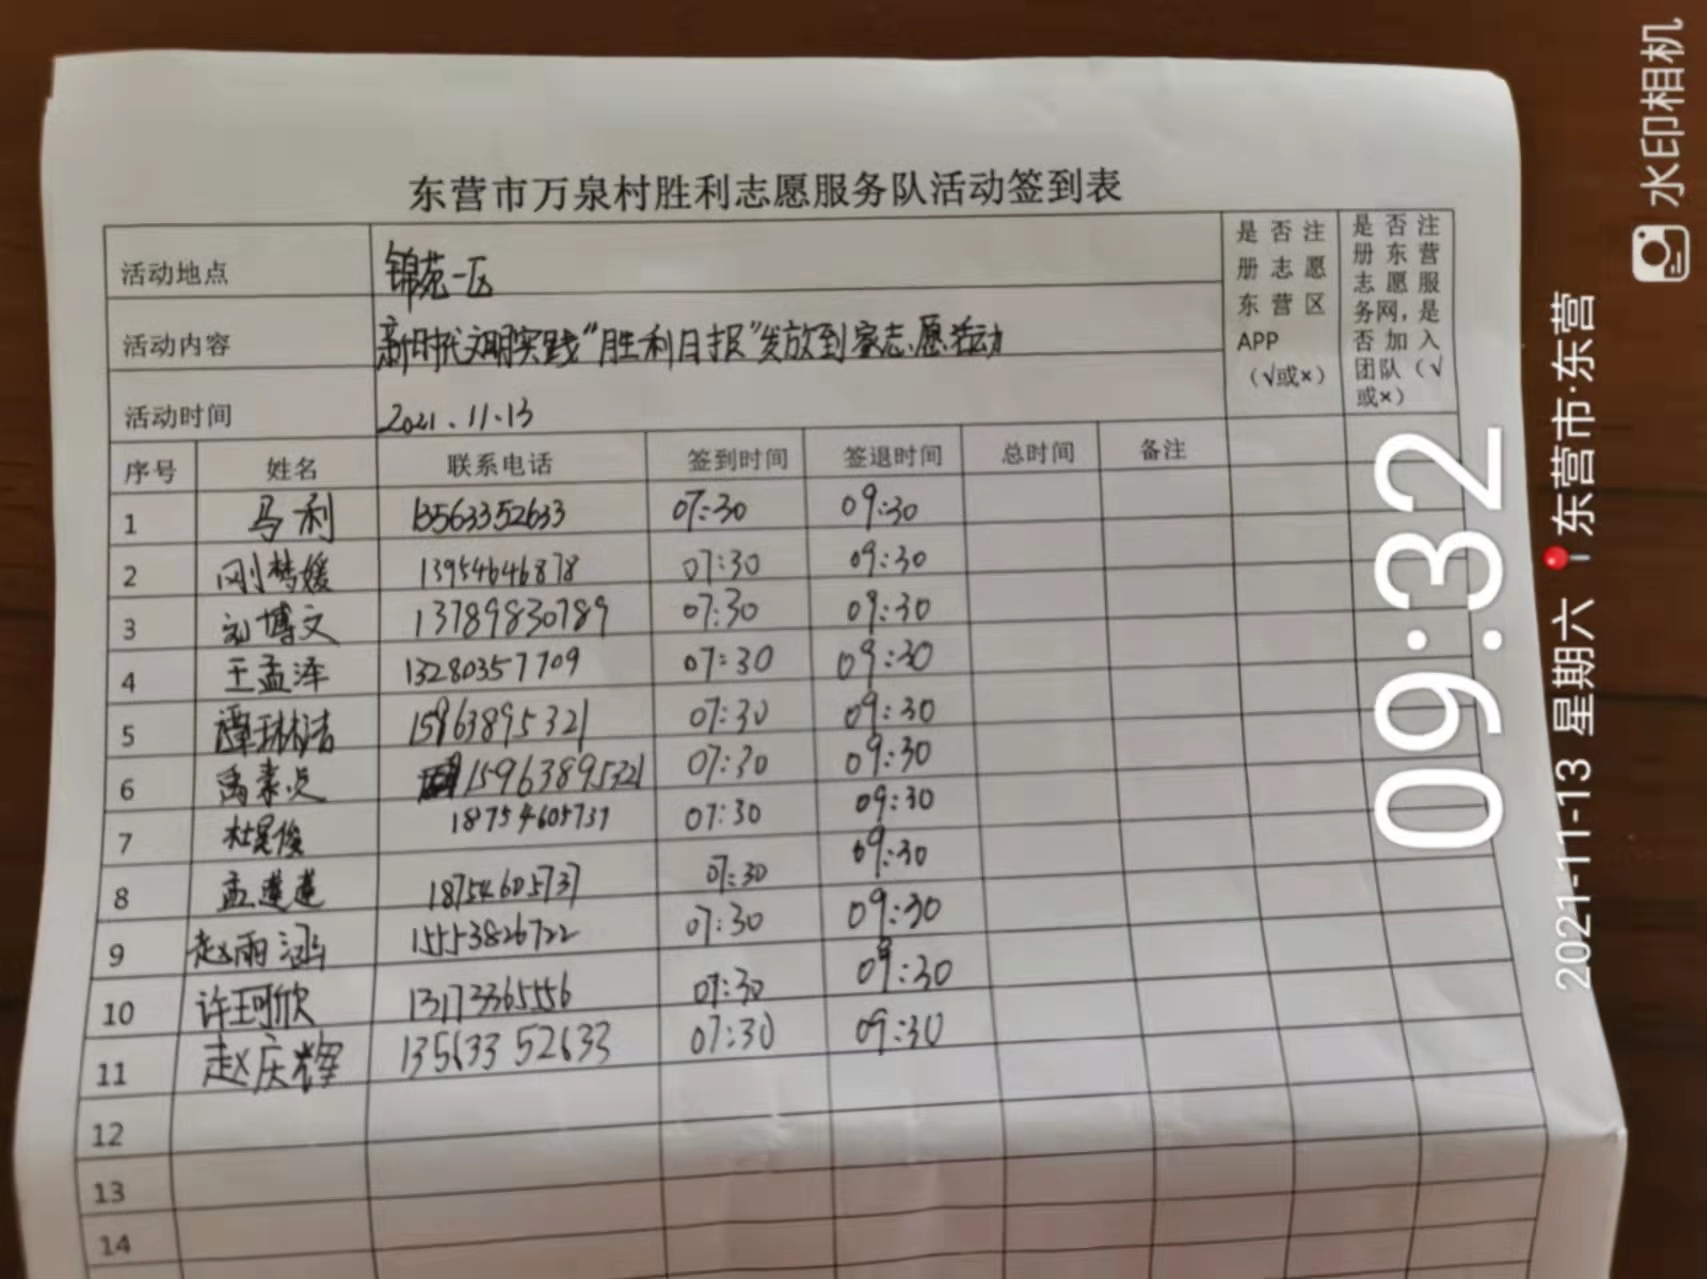 东营市万泉村胜利志愿服务队活动签到表
活动地点 锦苑一区
活动内容 新时代文明实践“胜利日报”发放到家志愿活动
活动时间 2021.11.13
是否注册志愿东营区APP（√或×）
是否注册东营志愿服务网，是否加入团队（√或×）
序号 姓名 联系电话 签到时间 签退时间 总时间 备注
1 马利 13563352633 07:30 09:30
2 刚梦媛 13954646878 07:30 09:30
3 刘博文 13789830789 07:30 09:30
4 王孟泽 13280357709 07:30 09:30
5 谭琳洁 15963895321 07:30 09:30
6 15963895321 07:30 09:30
7 杜昊俊 18754605737 07:30 09:30
8 孟莲莲 18754605737 07:30 09:30
9 赵雨涵 15553826722 07:30 09:30
10 许珂欣 13173365556 07:30 09:30
11 赵庆辉 13563352633 07:30 09:30
12
13
14
09:32
2021-11-13 星期六 东营市·东营
水印相机